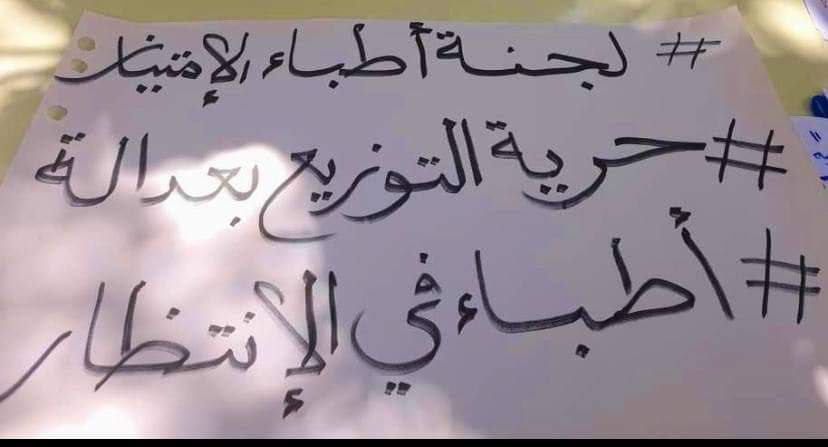 # لجنة أطباء الإمتياز
#حرية التوزيع بعدالة
#أطباء في الإنتظار